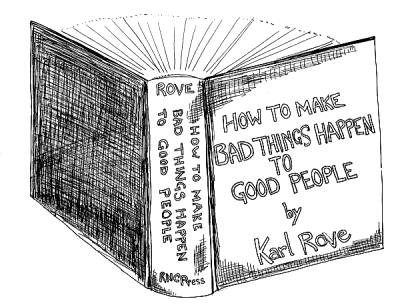 ROVE
HOW TO MAKE
BAD THINGS HAPPEN
TO GOOD PEOPLE
RNC Press
HOW TO MAKE
BAD THINGS HAPPEN
TO
GOOD PEOPLE
by
Karl Rove